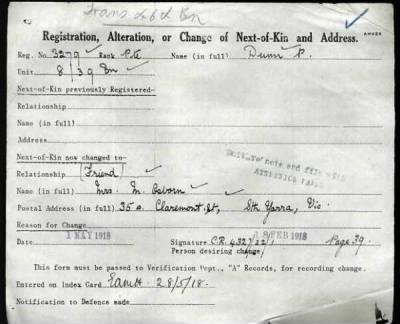 Trans to 6th Bn
Registration, Alteration, or Change of Next-of-Kin and Address.
Reg. No. 3279 Rank Pte Name (in full) Dunn P.
Unit 8/39 Bn
Next-of-Kin previously Registered-
Relationship
Name (in full)
Address
Next-of-Kin now changed to-
Relationship (Friend)
Name (in full) Mrs. M. Osborn
Postal Address (in full) 35a. Claremont St, Sth Yarra, Vic.
Reason for Change
Date 1 MAY 1918 Signature C.R. 432/22/1 18 FEB 1918 Page 39.
Person desiring change
This form must be passed to Verification Dept., "A" Records, for recording change.
Entered on Index Card 28/5/18.
Notification to Defence made